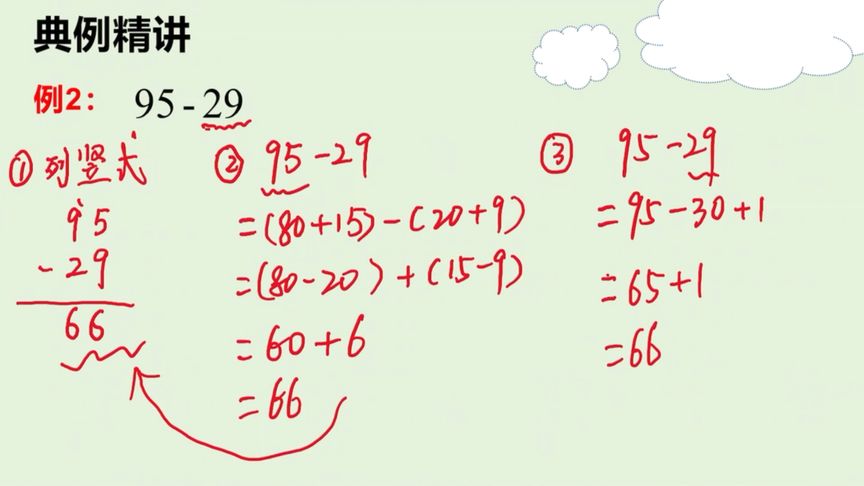 典例精讲
例2： 95-29
①列竖式
95
-29
66
② 95-29
=(80+15)-(20+9)
=(80-20)+(15-9)
=60+6
=66
③ 95-29
=95-30+1
=65+1
=66